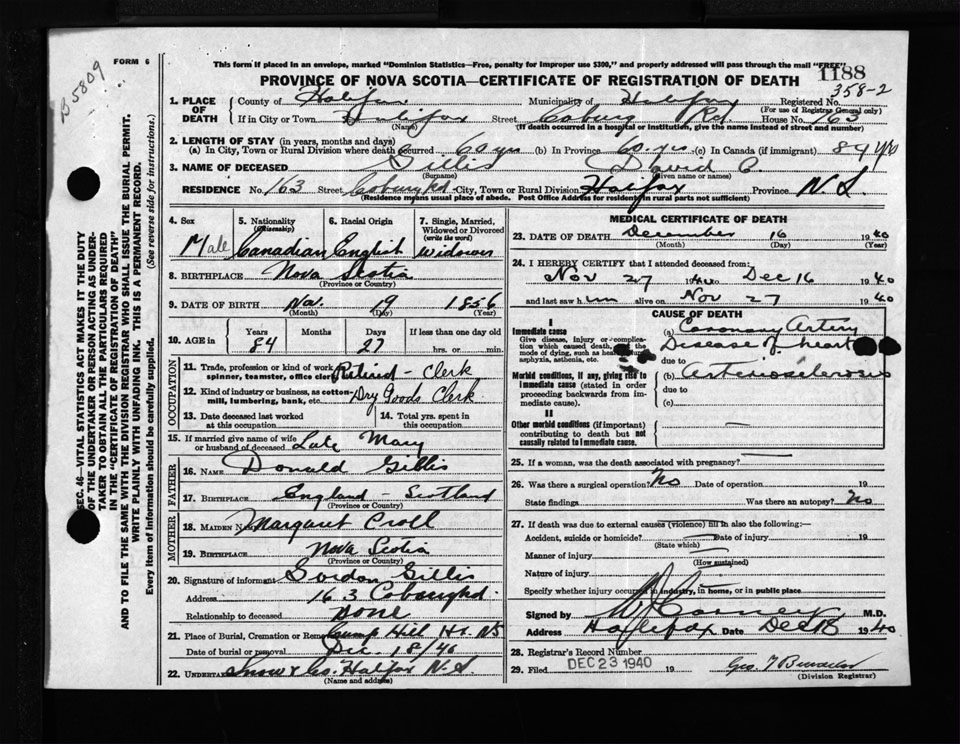 B 5809
FORM 6
This form if placed in an envelope, marked "Dominion Statistics—Free, penalty for improper use $300," and properly addressed will pass through the mail "FREE"
1188
PROVINCE OF NOVA SCOTIA—CERTIFICATE OF REGISTRATION OF DEATH
358-2
1. PLACE OF DEATH County of Halifax Municipality of Halifax Registered No.
(For use of Registrar General only)
If in City or Town Halifax Street Coburg Rd. House No. 163
(Name) (If death occurred in a hospital or institution, give the name instead of street and number)
2. LENGTH OF STAY (in years, months and days)
(a) In City, Town or Rural Division where death occurred 60 yrs (b) In Province 60 yrs (c) In Canada (if immigrant) 84 yrs
3. NAME OF DECEASED Gillis David C.
(Surname) (Given name or names)
RESIDENCE No. 163 Street Coburg Rd City, Town or Rural Division Halifax Province N.S.
(Residence means usual place of abode. Post Office Address for residents in rural parts not sufficient)
SEC. 46—VITAL STATISTICS ACT MAKES IT THE DUTY
OF THE UNDERTAKER OR PERSON ACTING AS UNDER-
TAKER TO OBTAIN ALL THE PARTICULARS REQUIRED
IN THE "CERTIFICATE OF REGISTRATION OF DEATH"
AND TO FILE THE SAME WITH THE DIVISION REGISTRAR WHO SHALL ISSUE THE BURIAL PERMIT.
WRITE PLAINLY WITH UNFADING INK. THIS IS A PERMANENT RECORD.
Every item of information should be carefully supplied. (See reverse side for instructions.)
4. Sex 5. Nationality (Citizenship) 6. Racial Origin 7. Single, Married, Widowed or Divorced (write the word)
Male Canadian English Widower
8. BIRTHPLACE Nova Scotia
(Province or Country)
9. DATE OF BIRTH Nov. 19 1856
(Month) (Day) (Year)
10. AGE in Years Months Days If less than one day old
84 27 hrs. or min.
OCCUPATION
11. Trade, profession or kind of work as spinner, teamster, office clerk Retired - Clerk
12. Kind of industry or business, as cotton-mill, lumbering, bank, etc. Dry Goods Clerk
13. Date deceased last worked at this occupation 14. Total yrs. spent in this occupation
15. If married give name of wife or husband of deceased Late Mary
FATHER
16. NAME Donald Gillis
17. BIRTHPLACE England - Scotland
(Province or Country)
MOTHER
18. MAIDEN NAME Margaret Croll
19. BIRTHPLACE Nova Scotia
(Province or Country)
20. Signature of informant Gordon Gillis
Address 163 Coburg Rd.
Relationship to deceased
21. Place of Burial, Cremation or Removal Camp Hill Hx NS
Date of burial or removal Dec. 18/40
22. UNDERTAKER Snow & Co. Halifax N.S
(Name and address)
MEDICAL CERTIFICATE OF DEATH
23. DATE OF DEATH December 16 1940
(Month) (Day) (Year)
24. I HEREBY CERTIFY that I attended deceased from:
Nov 27 1940 to Dec 16 1940
and last saw him alive on Nov 27 1940
CAUSE OF DEATH
I
Immediate cause
Give disease, injury or complication which caused death, not the mode of dying, such as heart failure, asphyxia, asthenia, etc.
(a) Coronary Artery
Disease of heart
due to
Morbid conditions, if any, giving rise to immediate cause (stated in order proceeding backwards from immediate cause).
(b) Arteriosclerosis
due to
(c)
II
Other morbid conditions (if important) contributing to death but not causally related to immediate cause.
25. If a woman, was the death associated with pregnancy?
26. Was there a surgical operation? No Date of operation 19
State findings Was there an autopsy? No
27. If death was due to external causes (violence) fill in also the following:—
Accident, suicide or homicide? Date of injury 19
(State which)
Manner of injury
(How sustained)
Nature of injury
Specify whether injury occurred in industry, in home, or in public place
Signed by Carney M.D.
Address Halifax Date Dec 18 1940
28. Registrar's Record Number
29. Filed DEC 23 1940 19
(Division Registrar)